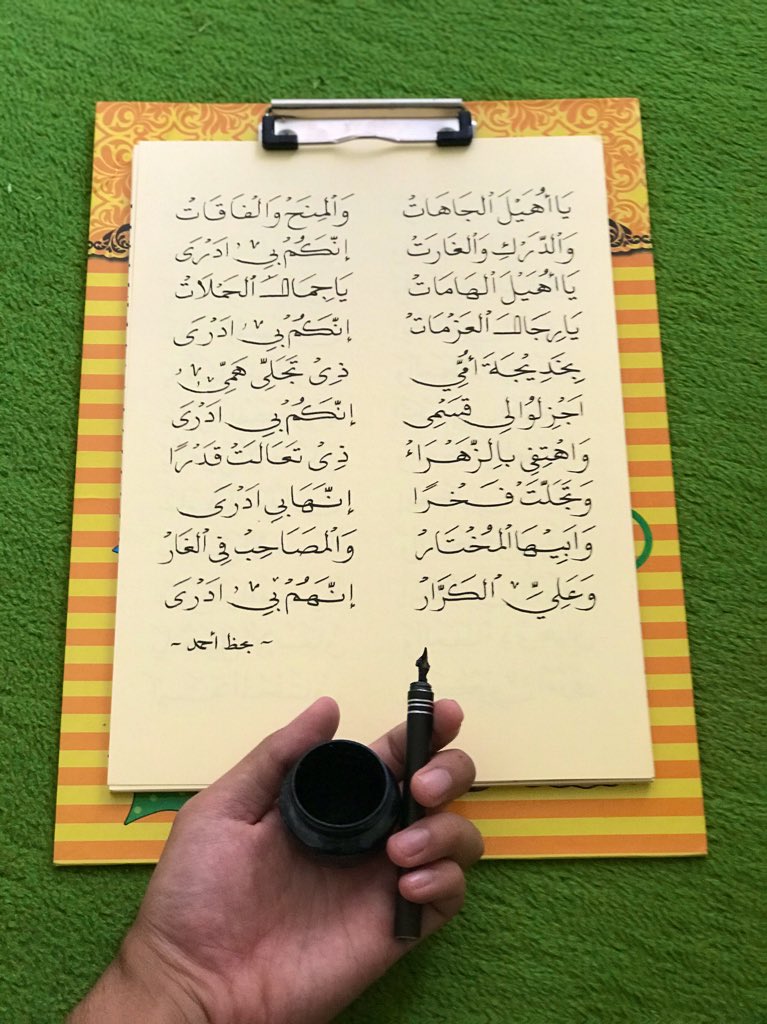 يَا اُهَيْلَ الْجَاهَاتْ وَالْمِنَحْ وَالْفَاقَاتْ
وَالدَّرَكِ وَالْغَارَتْ إِنَّكُمْ بِيْ اَدْرَى
يَا اُهَيْلَ الْهَامَاتْ يَا جِمَالَ الْحَمْلَاتْ
يَا رِجَالَ الْعَزْمَاتْ إِنَّكُمْ بِيْ اَدْرَى
بِخَدِيْجَةَ أُمِّي ذِيْ تَجَلِّيْ هَمِّيْ
اَجْزِلُوْا لِي قَسَمِى إِنَّكُمْ بِي اَدْرَى
وَاهْتِفِي بِالزَّهْرَاءْ ذِيْ تَعَالَتْ قَدْرًا
وَتَجَلَّتْ فَخْرًا إِنَّهَا بِي اَدْرَى
وَابِيْهَا الْمُخْتَارْ وَالْمُصَاحِبْ فِي الْغَارْ
وَعَلِيِّ الْكَرَّارْ إِنَّهُمْ بِيْ اَدْرَى
~ بخط أحمد ~